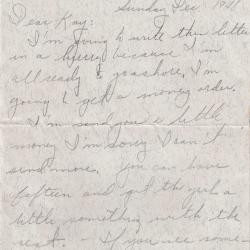 Sunday Dec. 1941
Dear Kay:
I'm going to write this letter
in a hurry because I'm
all ready to go ashore, I'm
going to get a money order.
I'm send you a little
money I'm sorry I can't
send more. You can have
fifteen and get the girls a
little something with the
rest. - If you need some